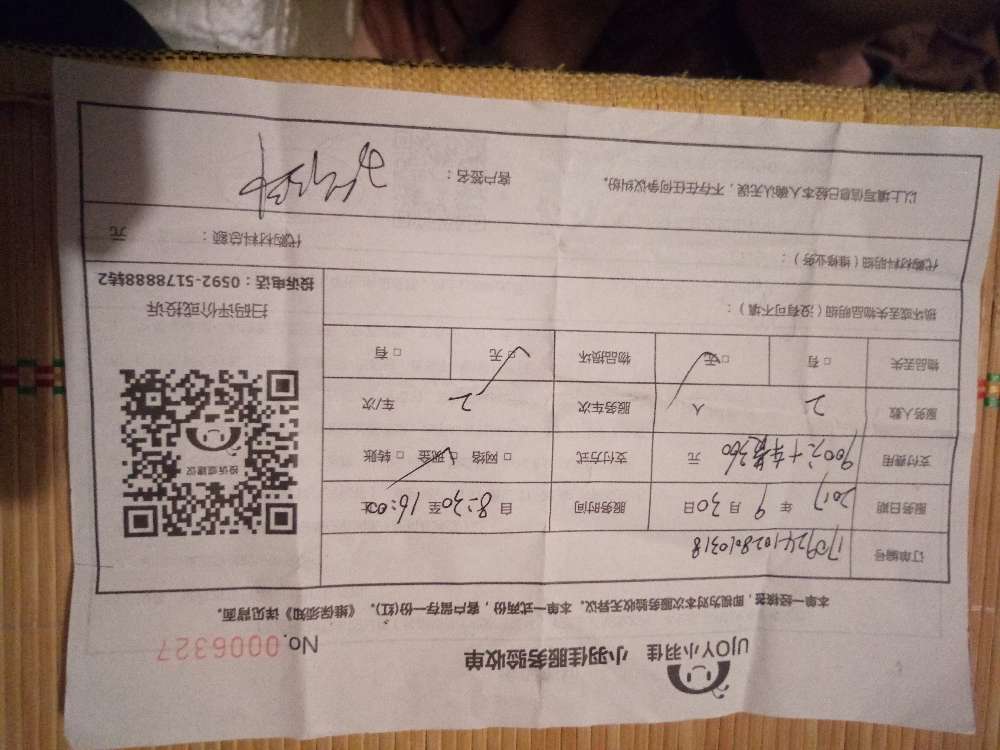 UJOY小羽佳 小羽佳服务验收单 No.0006327
本单一经接签，即视为对本次服务验收无异议。本单一式两份，客户留存一份(红)。《维保须知》详见背面。
订单编号 1709241028010318
服务日期 2017年9月30日 服务时间 自8:30至16:00止
支付费用 900元+车费360元 支付方式 □网络 □现金 □转账
服务人数 2人 服务车次 2车/次
物品丢失 □有 □无 物品损坏 □无 □有
损坏或丢失物品明细（没有可不填）：
投诉或建议
扫码评价或投诉
投诉电话：0592-5178888转2
代购材料明细（维修业务）： 代购材料总额： 元
以上填写信息已经本人确认无误，不存在任何争议纠纷。 客户签名：